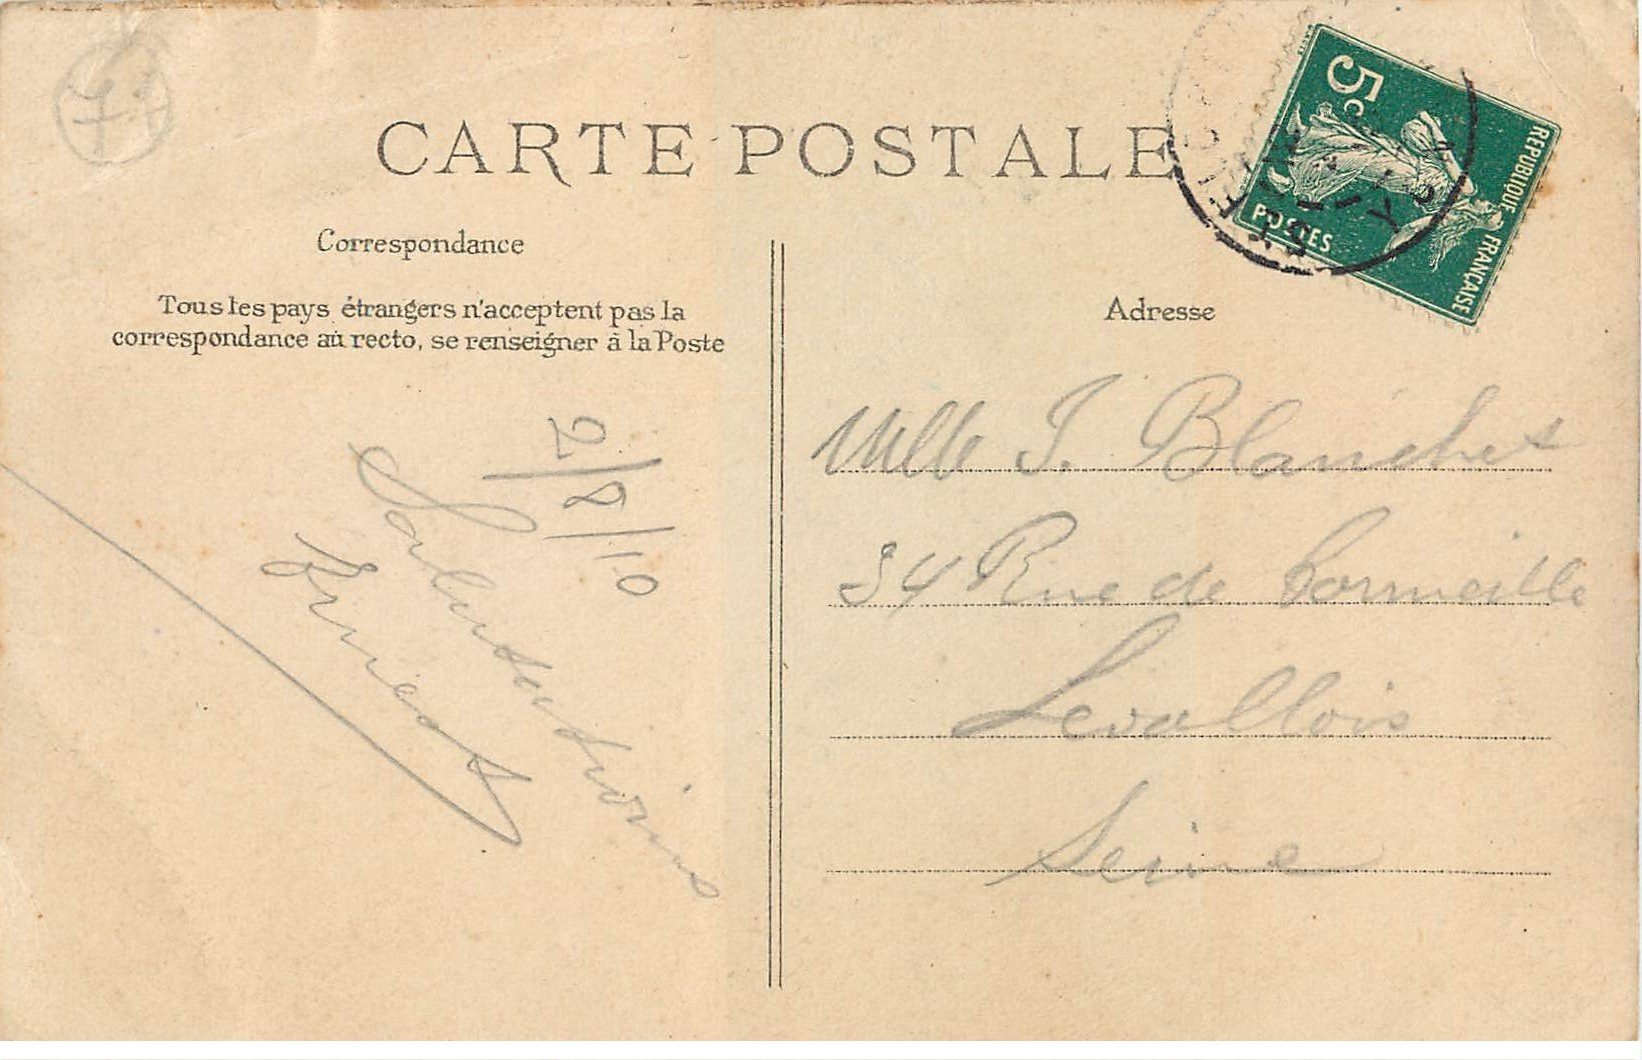 CARTE POSTALE
Correspondance
Tous les pays étrangers n'acceptent pas la
correspondance au recto, se renseigner à la Poste
2/8/10
Salutations
Ernest
Adresse
Mlle J. Blanchet
34 Rue de Cormeille
Levallois
Seine
5c
POSTES
REPUBLIQUE FRANÇAISE